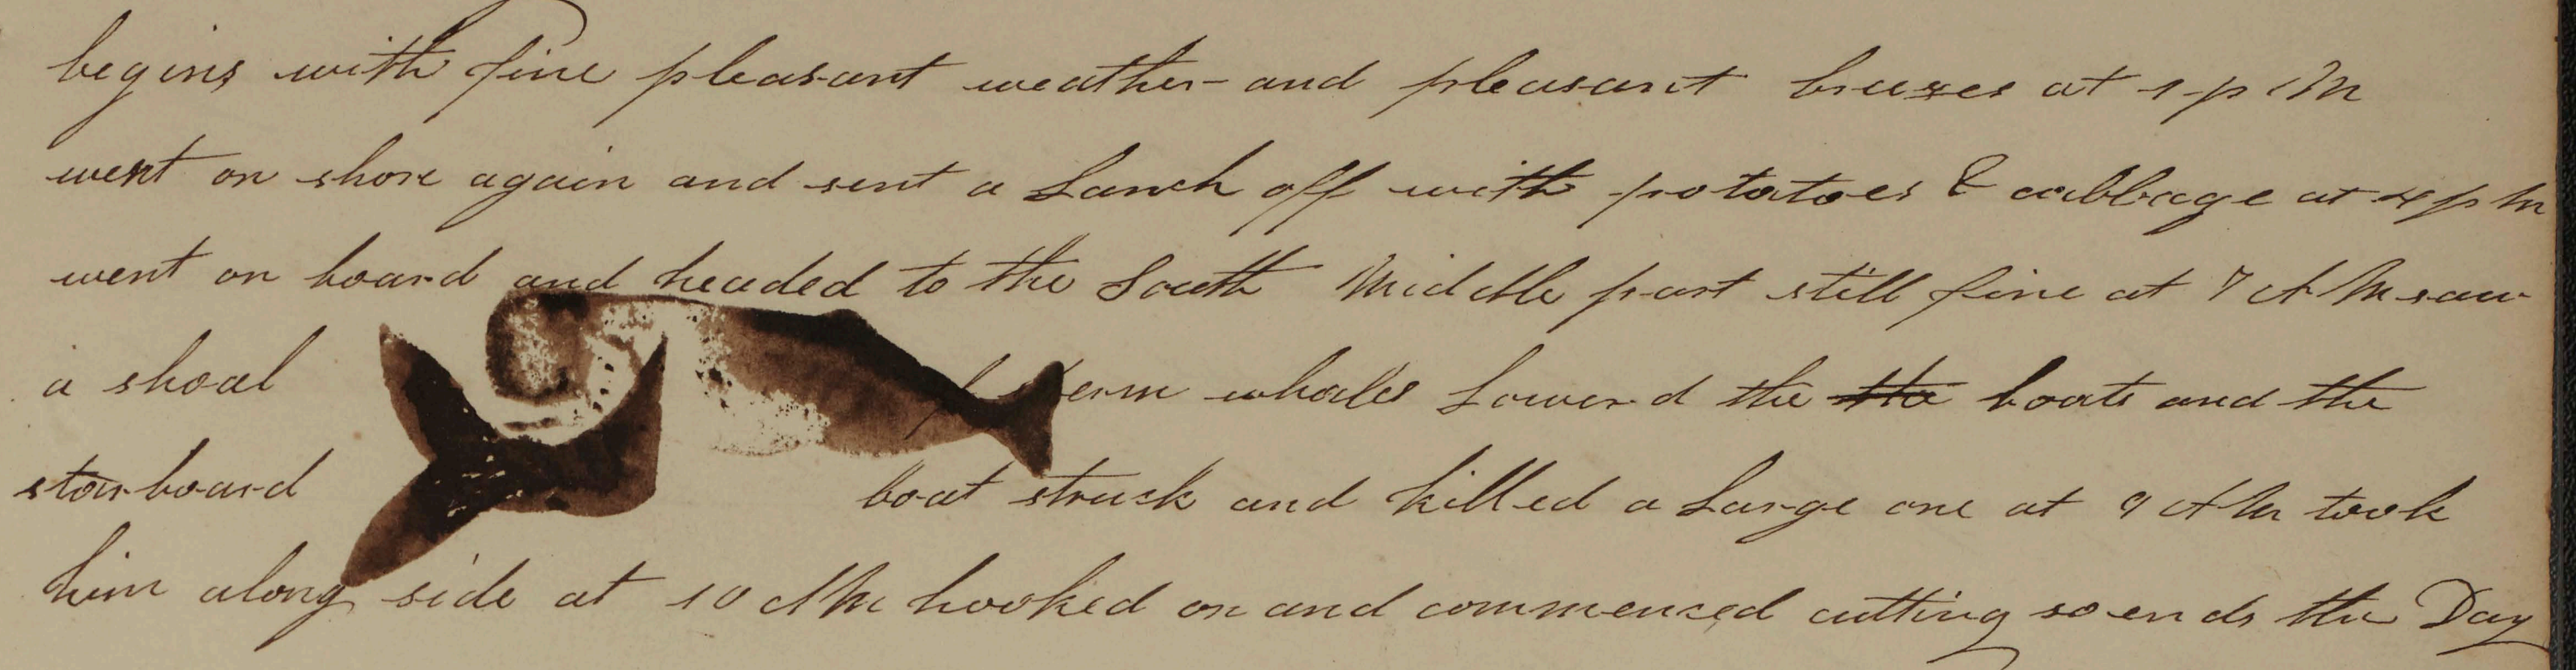 begins with fine pleasant weather and pleasant breezes at 1 p M
went on shore again and sent a Lanch off with potatoes & cabbage at 4 p m
went on board and headed to the South Middle part still fine at 7 A M saw
a shoal of sperm whales Lowered the the boats and the
starboard boat struck and killed a Large one at 9 A M took
him along side at 10 A M hooked on and commenced cutting so ends the Day